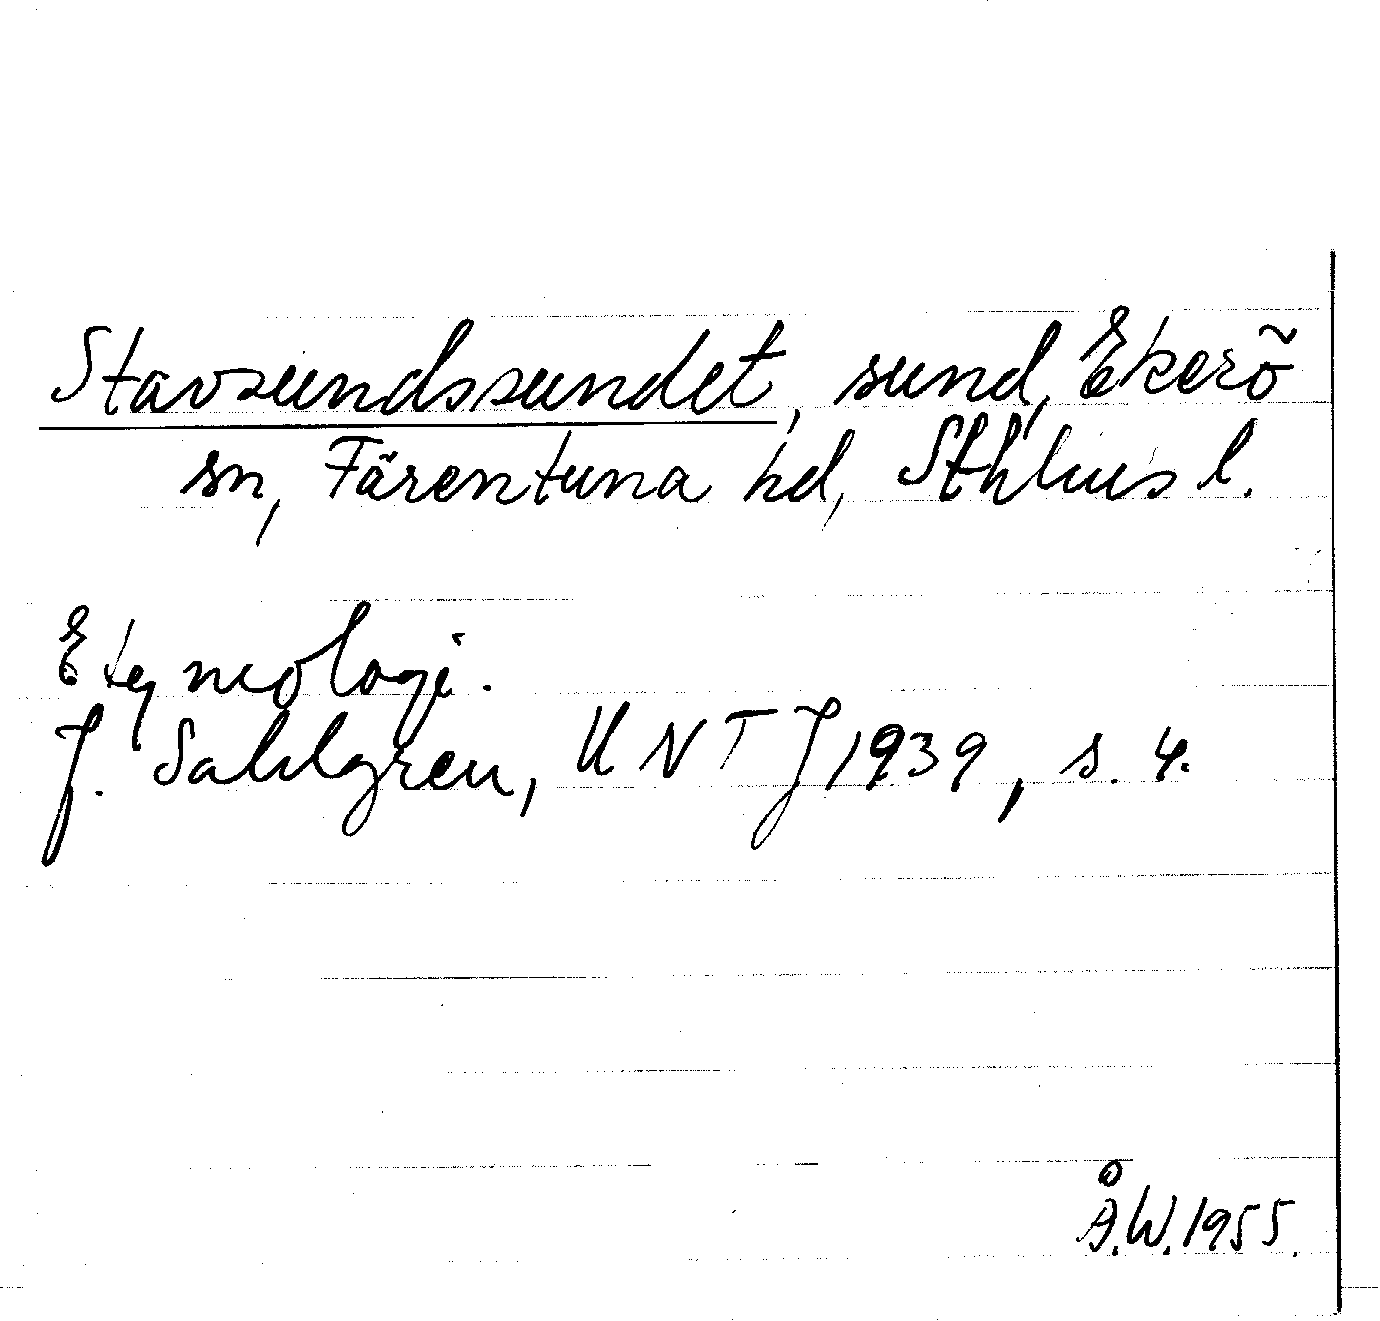 Stavsundssundet, sund, Ekerö
sn, Färentuna hd, Sthlms l.
Etymologi.
J. Sahlgren, UNTJ 1939, s. 4.
Å.W. 1955.